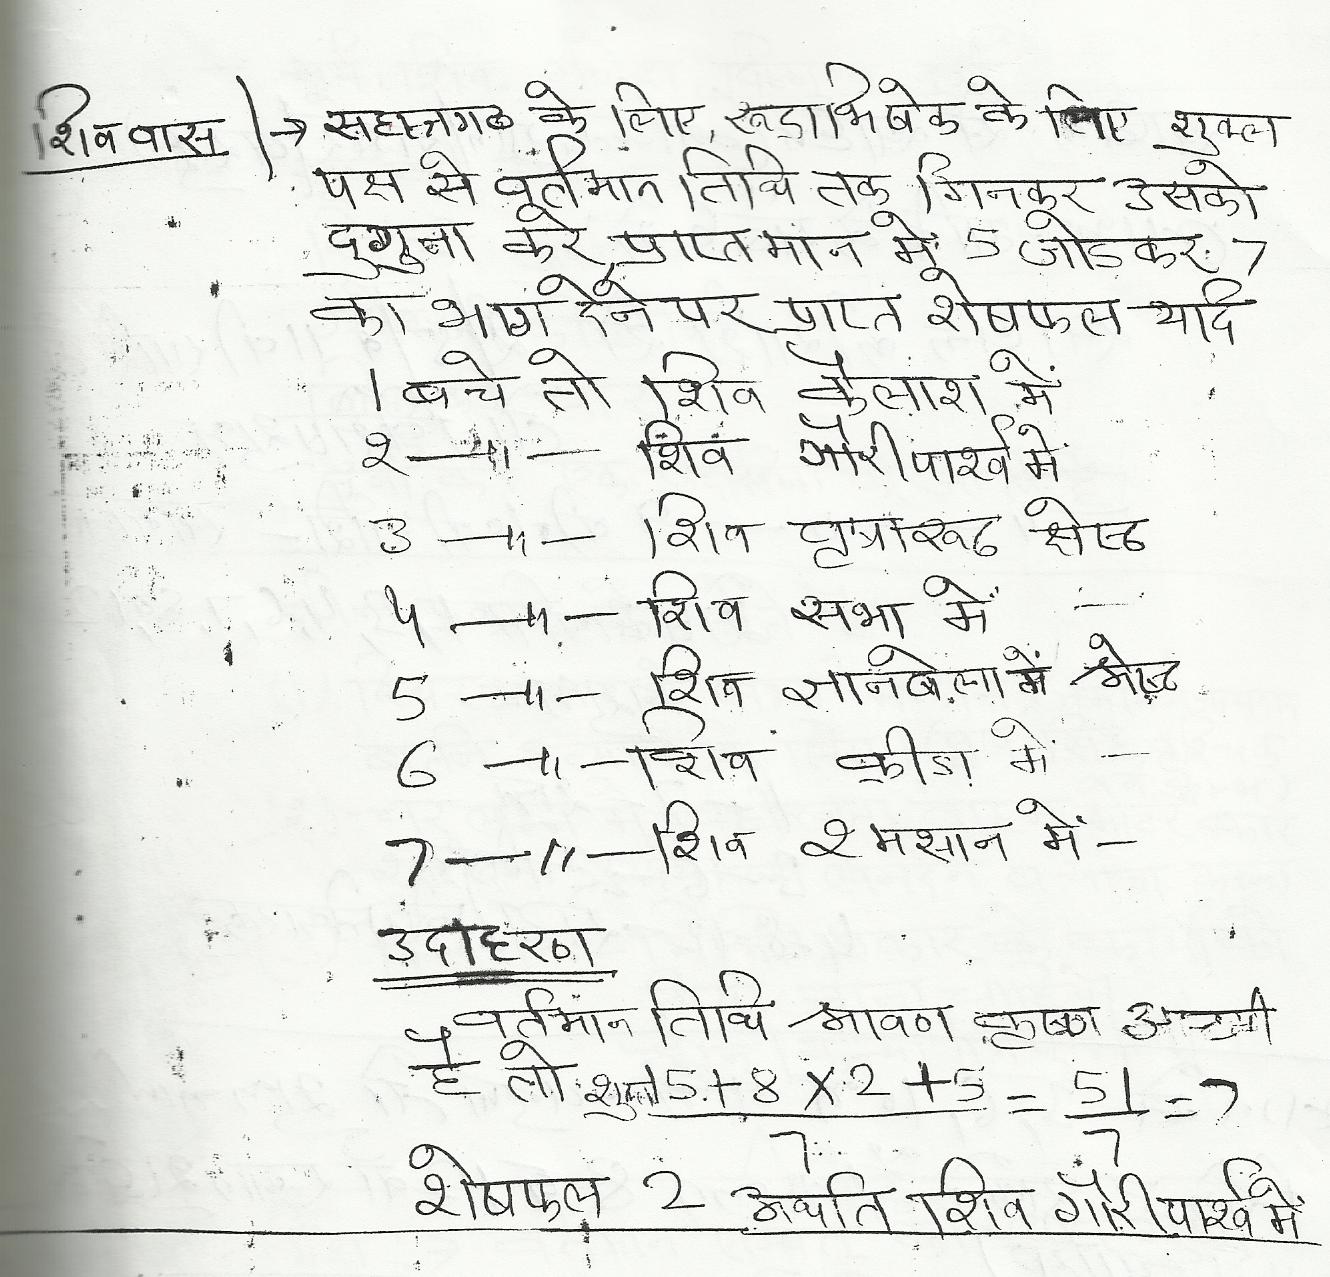 शिववास )→ सहस्त्रगढ के लिए, रूद्राभिषेक के लिए शुक्ल
पक्ष से वर्तमान तिथि तक गिनकर उसको
दुगुना करे, प्राप्त मान में 5 जोडकर 7
का भाग देने पर प्राप्त शेषफल यदि
1 बचे तो शिव कैलाश में
2 —〃— शिव गौरीपार्श्व में
3 —〃— शिव वृषारूढ श्रेष्ठ
4 —〃— शिव सभा में —
5 —〃— शिव ज्ञानबेला में श्रेष्ठ
6 —〃— शिव क्रीडा में —
7 —〃— शिव श्मसान में —
उदाहरण
वर्तमान तिथि श्रावण कृष्ण अष्टमी
है तो शुक्ल 15+8 × 2 + 5 = 51 = 7
7 7
शेषफल 2 अर्थात शिव गौरीपार्श्व में